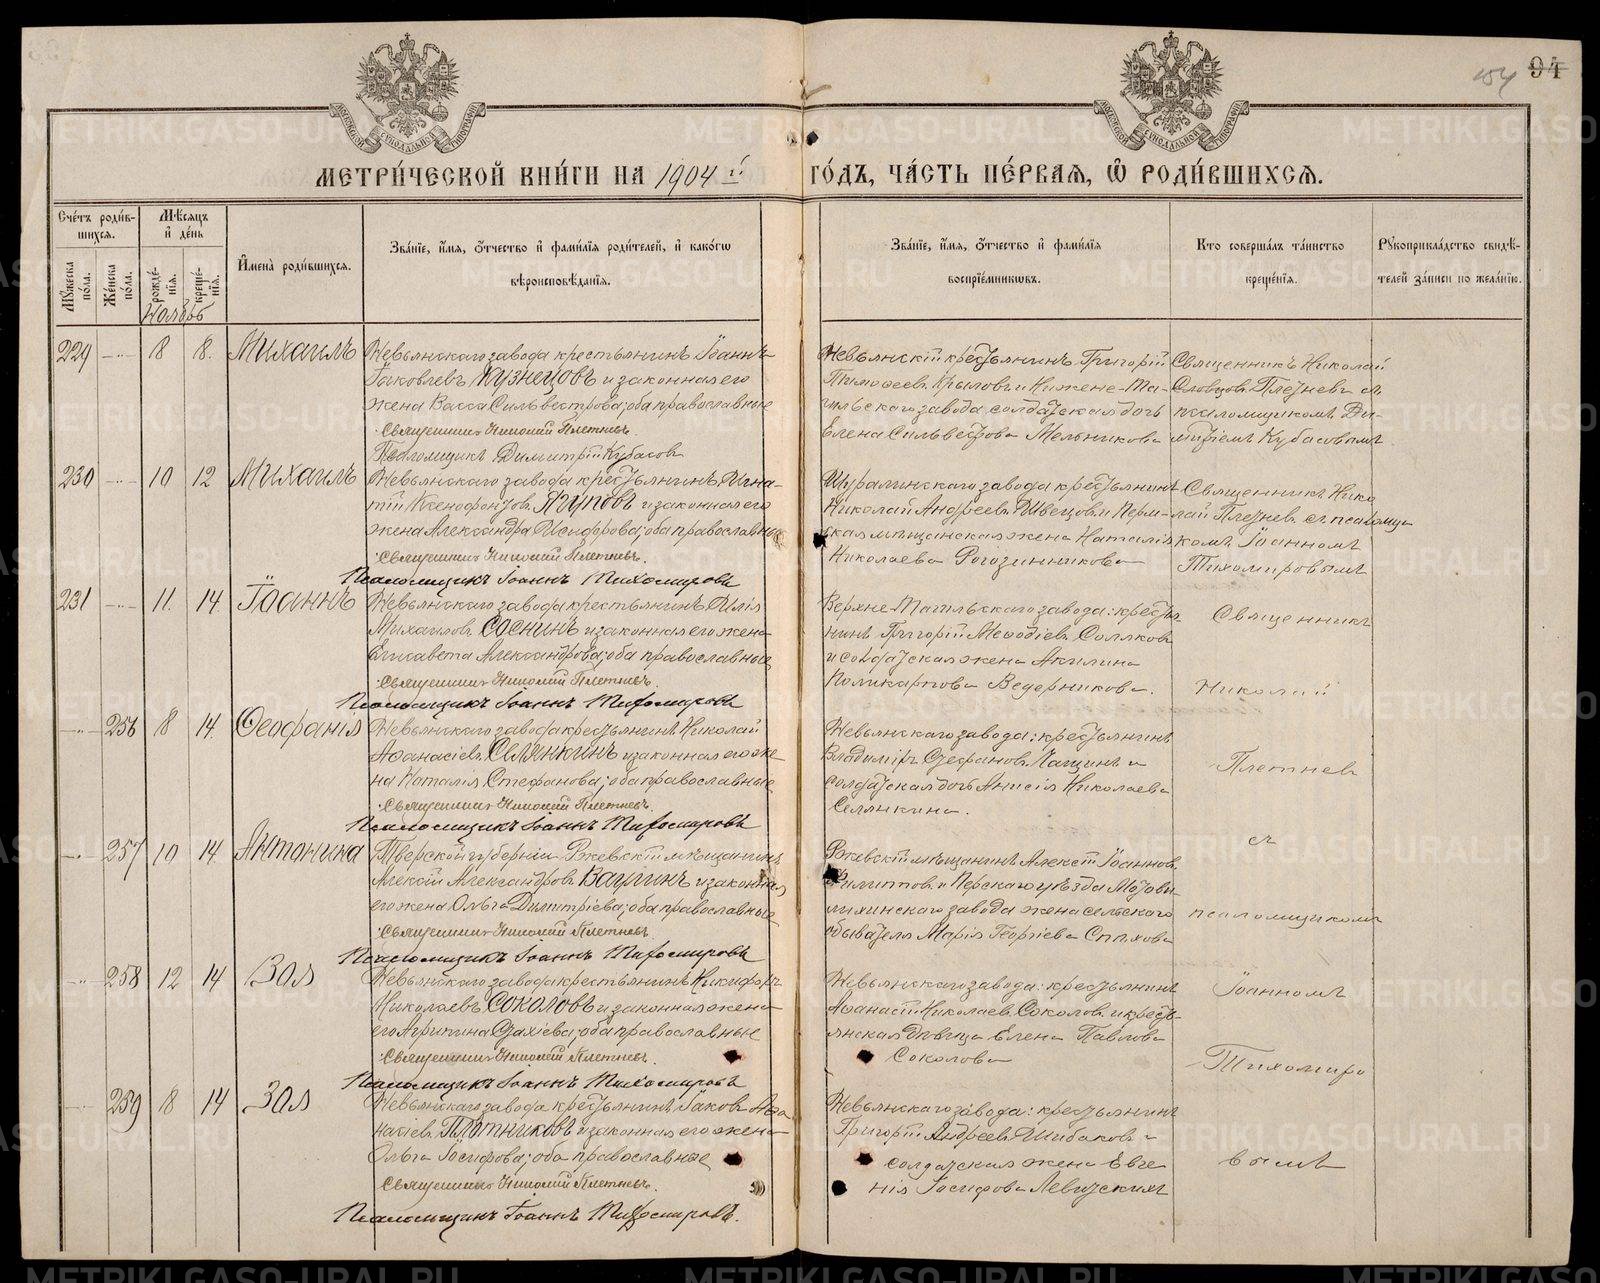 94
154
МЕТРИ́ЧЕСКОЙ КНИ́ГИ НА 1904 й ГО́ДЪ, ЧА́СТЬ ПЕ́РВАѦ, Ѡ҆ РОДИ́ВШИХСѦ.
Сче́тъ роди́вшихсѧ.
Му́жеска по́ла.
Же́нска по́ла.
Мѣ́сѧцъ и҆ де́нь
рожде́нїѧ.
креще́нїѧ.
И҆мена̀ роди́вшихсѧ.
Зва́нїе, и҆́мѧ, ѻ҆́тчество и҆ фами́лїѧ роди́телей, и҆ како́гѡ
вѣроисповѣ́данїѧ.
Зва́нїе, и҆́мѧ, ѻ҆́тчество и҆ фами́лїѧ
воспрїе́мникѡвъ.
Кто̀ соверша́лъ та́инство
креще́нїѧ.
Рꙋкоприкла́дство свидѣ́телей за́писи по жела́нїю.
Ноябрь
229 8 8. Михаилъ
Невьянскаго завода крестьянинъ Іоаннъ
Іаковлевъ Кузнецовъ и законная его
жена Васса Сильвестрова; оба православные
Священникъ Николай Плетневъ.
Псаломщикъ Димитрій Кубасовъ
Невьянскій крестьянинъ Григорій
Тимофеев. Крыловъ и Нижне-Та-
гильскаго завода солдатская дочь
Елена Сильвестрова Мельникова
Священникъ Николай
Словцовъ Плетневъ съ
псаломщикомъ Ди-
митріемъ Кубасовымъ
230 10 12 Михаилъ
Невьянскаго завода крестьянинъ Игна-
тій Ксенофонтов. Ягуповъ и законная его
жена Александра Исидорова; оба православные
Священникъ Николай Плетневъ.
Псаломщикъ Іоаннъ Тихомировъ
Шуралинскаго завода крестьянинъ
Николай Андреев. Швецовъ и Перм-
ская мѣщанская жена Наталія
Николаева Рогозинникова
Священникъ Нико
лай Плетневъ съ псаломщи
комъ Іоанномъ
Тихомировымъ
231 11. 14 Іоаннъ
Невьянскаго завода крестьянинъ Илія
Михаилов. Соснинъ и законная его жена
Елисавета Александрова; оба православные
Священникъ Николай Плетневъ.
Псаломщикъ Іоаннъ Тихомировъ
Верхне-Тагильскаго завода: крестья-
нинъ Григорій Меѳодіев. Соляков
и солдатская жена Акилина
Поликарпова Ведерникова.
Священникъ
Николай
256 8 14. Ѳеофанія
Невьянскаго завода крестьянинъ Николай
Аѳанасіев. Селянкинъ и законная его же-
на Наталія Стефанова; оба православные
Священникъ Николай Плетневъ.
Псаломщикъ Іоаннъ Тихомировъ
Невьянскаго завода: крестьянинъ
Владиміръ Стефановъ Лащинъ и
солдатская дочь Анисія Николаева
Селянкина.
Плетневъ
257 10 14. Антонина
Тверской губерніи Ржевскій мѣщанинъ
Алексій Александров. Ваулинъ и законная
его жена Ольга Димитріева; оба православные
Священникъ Николай Плетневъ
Псаломщикъ Іоаннъ Тихомировъ
Ржевскій мѣщанинъ Алексій Іоаннов.
Филиппов. и Пермскаго уѣзда Мотови-
лихинскаго завода жена сельскаго
обывателя Марія Георгіева Спахова
съ
псаломщикомъ
258 12 14 Зоя
Невьянскаго завода крестьянинъ Никифоръ
Николаевъ Соколовъ и законная жена
его Агрипина Стахіева; оба православные
Священникъ Николай Плетневъ.
Псаломщикъ Іоаннъ Тихомировъ
Невьянскаго завода: крестьянинъ
Аѳанасій Николаев. Соколовъ и кресть-
янская дѣвица Елена Павлова
Соколова
Іоанномъ
Тихомиро
259 8 14 Зоя
Невьянскаго завода крестьянинъ Іаковъ Аѳа
насіев. Плотниковъ и законная его жена
Ольга Іосифова; оба православные
Священникъ Николай Плетневъ.
Псаломщикъ Іоаннъ Тихомировъ.
Невьянскаго завода: крестьянинъ
Григорій Андреев. Шибаковъ и
солдатская жена Евге
нія Іосифова Левитскихъ
вымъ
METRIKI.GASO-URAL.RU